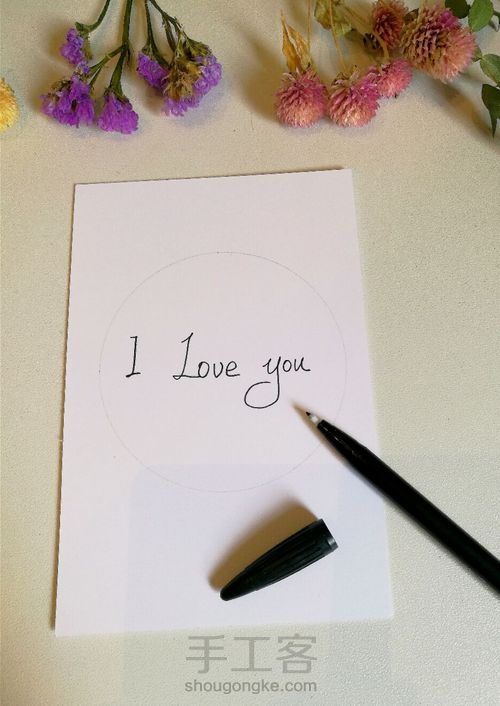 I Love you
手工客
shougongke.com